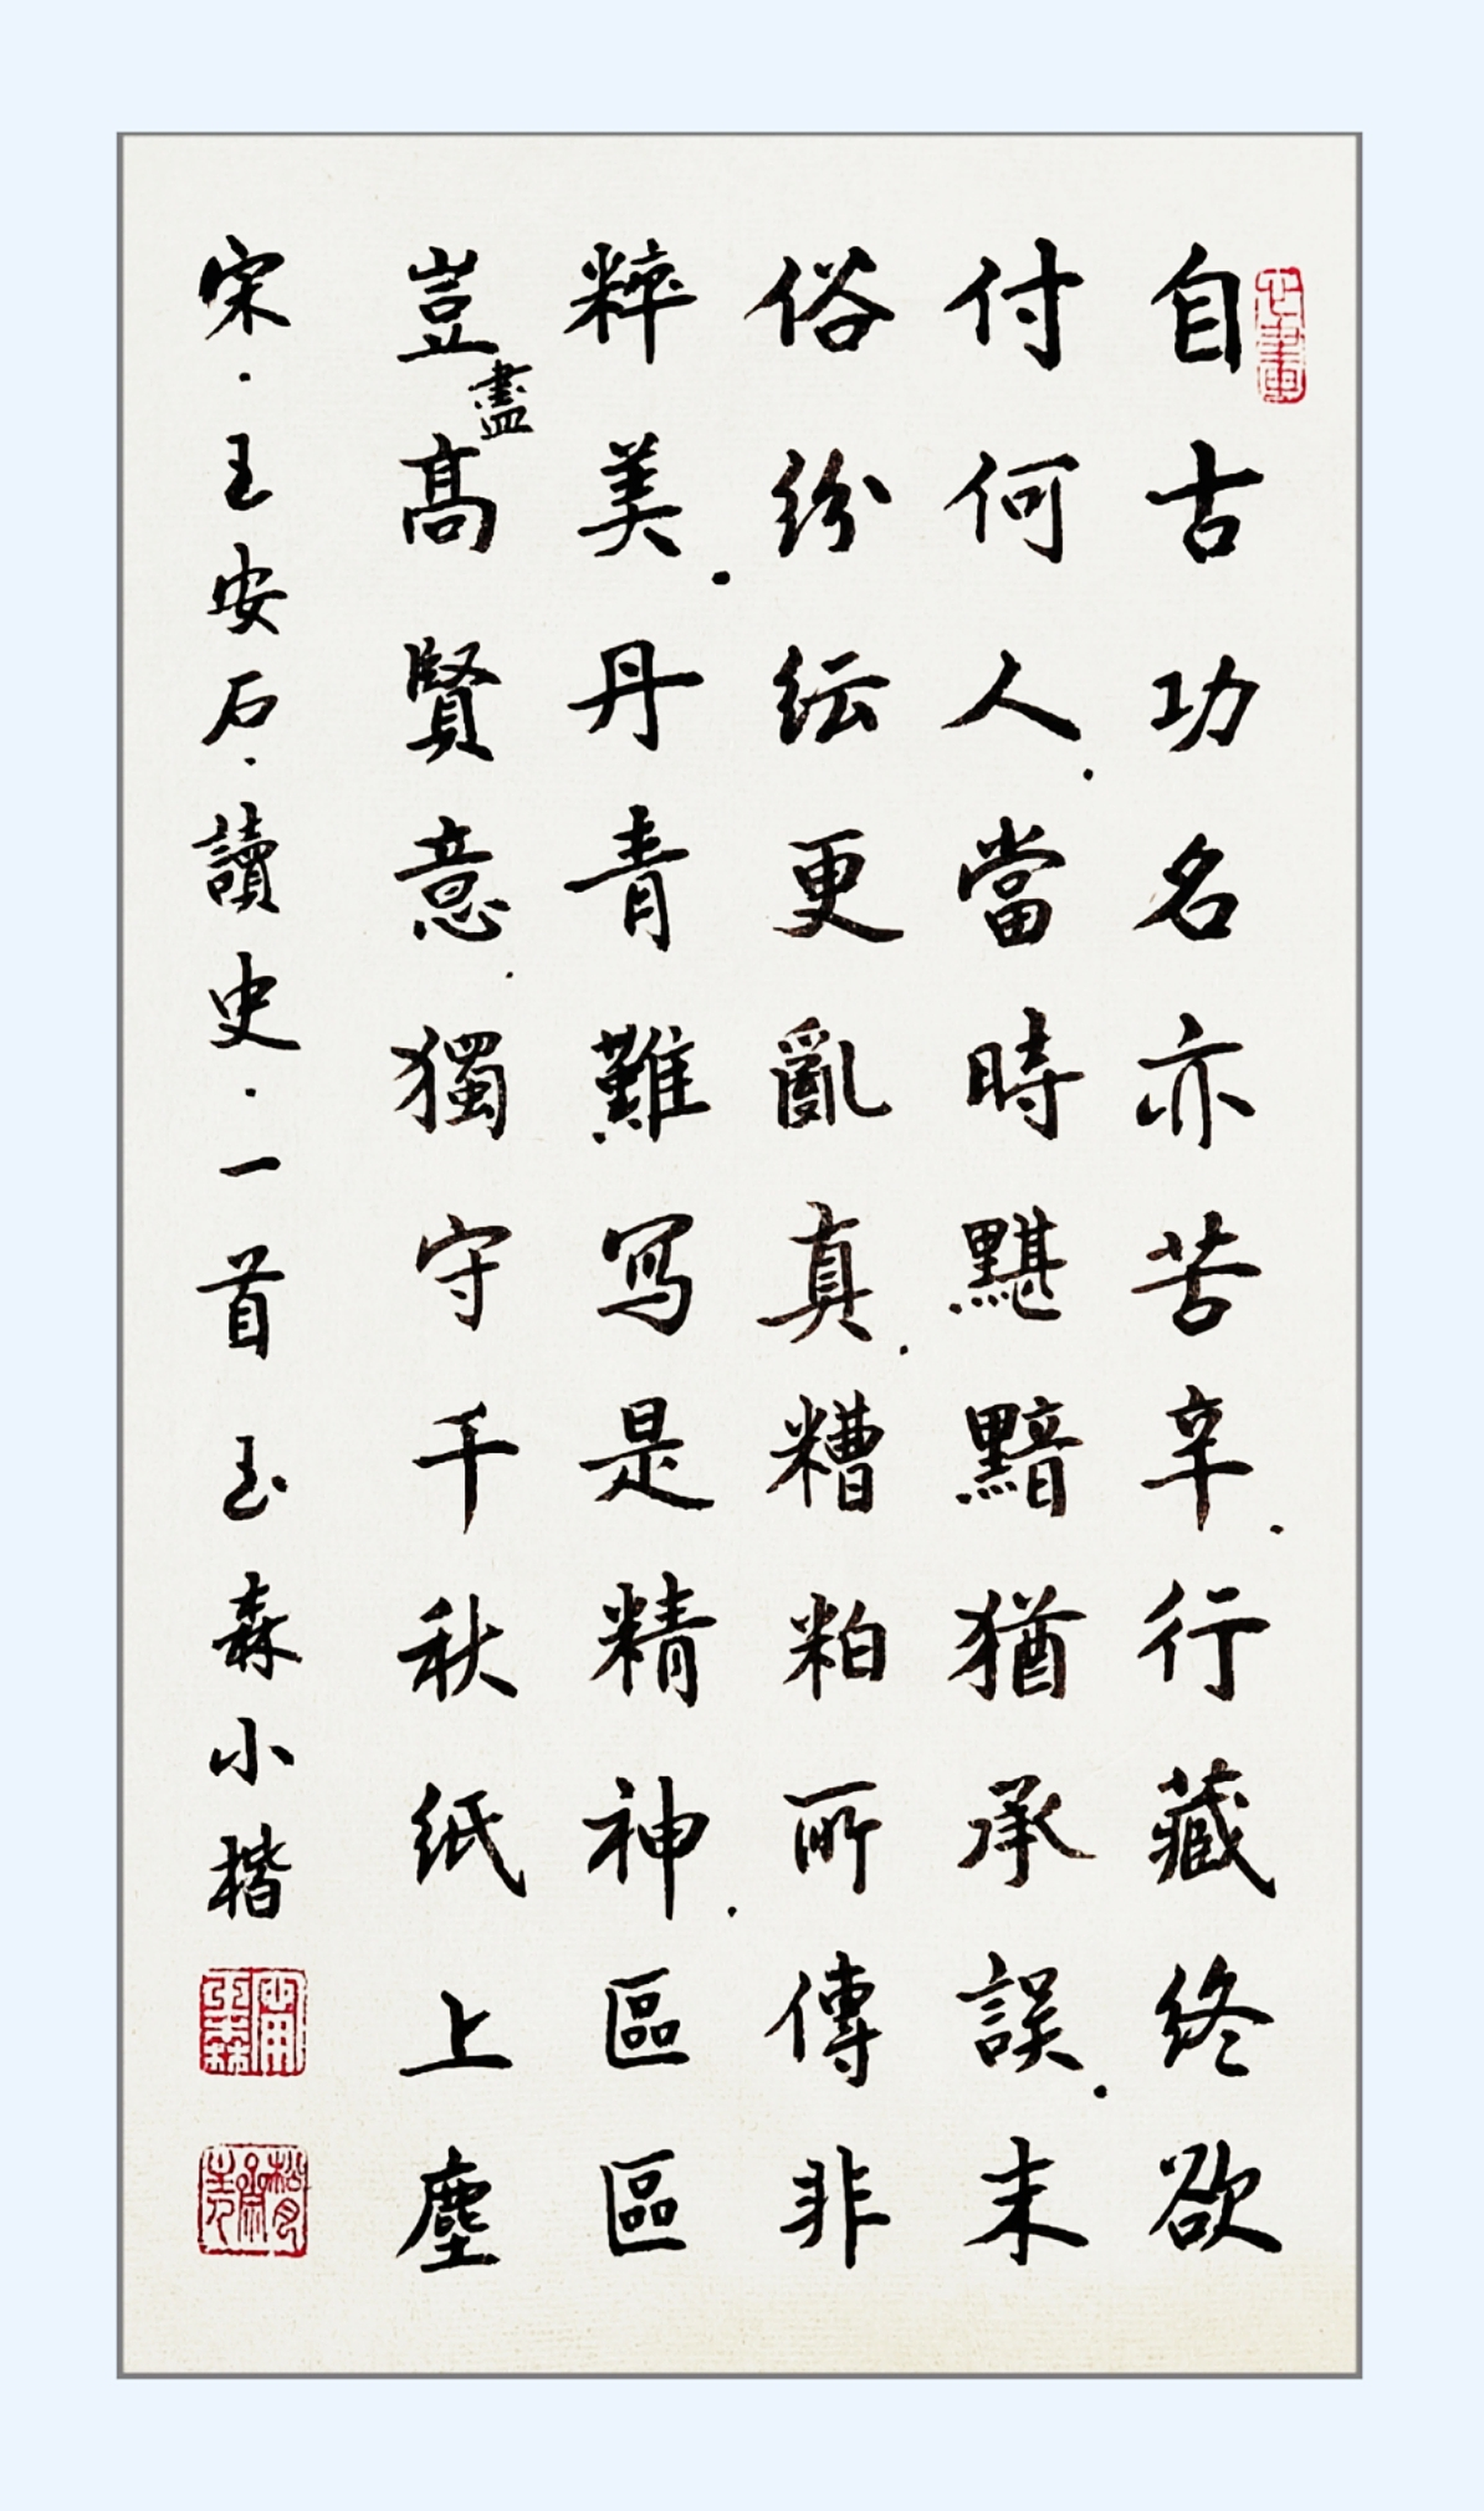 自古功名亦苦辛．行藏終欲
付何人．當時黮黯猶承誤．末
俗紛紜更亂真．糟粕所傳非
粹美．丹青難写是精神．區區
豈盡高賢意．獨守千秋紙上塵
宋．王安石．讀史．一首 玉森小楷